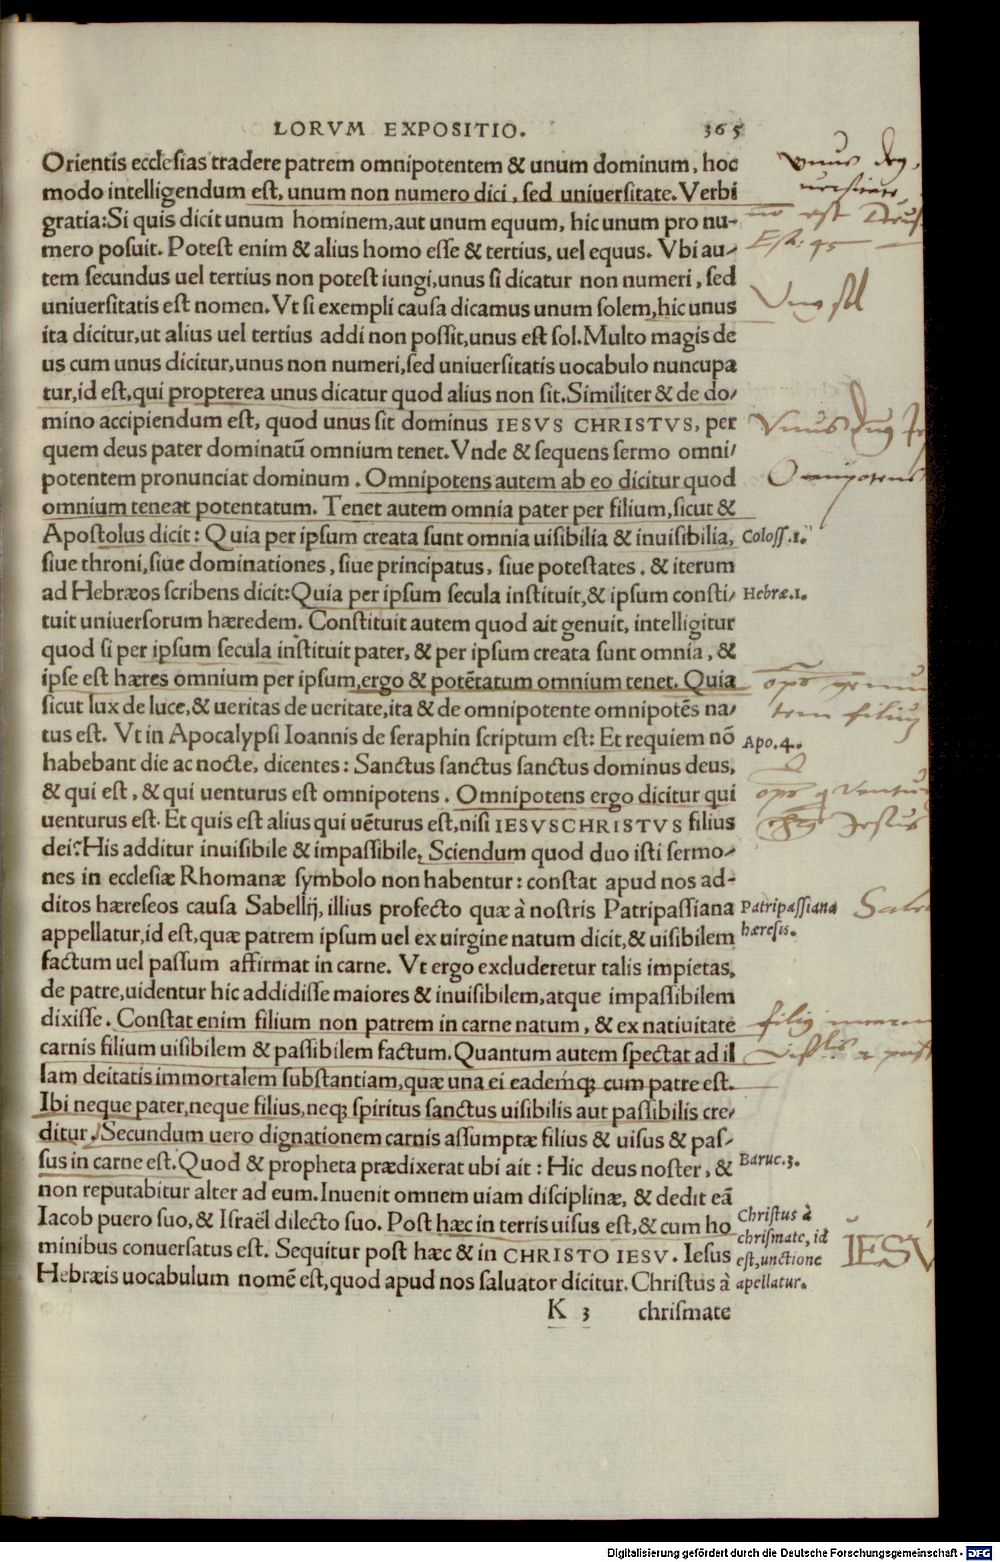 LORVM EXPOSITIO. 365
Orientis ecclesias tradere patrem omnipotentem & unum dominum, hoc
modo intelligendum est, unum non numero dici, sed uniuersitate. Verbi
gratia: Si quis dicit unum hominem, aut unum equum, hic unum pro nu-
mero posuit. Potest enim & alius homo esse & tertius, uel equus. Vbi au-
tem secundus uel tertius non potest iungi, unus si dicatur non numeri, sed
uniuersitatis est nomen. Vt si exempli causa dicamus unum solem, hic unus
ita dicitur, ut alius uel tertius addi non possit, unus est sol. Multo magis de
us cum unus dicitur, unus non numeri, sed uniuersitatis uocabulo nuncupa
tur, id est, qui propterea unus dicatur quod alius non sit. Similiter & de do/
mino accipiendum est, quod unus sit dominus IESVS CHRISTVS, per
quem deus pater dominatū omnium tenet. Vnde & sequens sermo omni/
potentem pronunciat dominum. Omnipotens autem ab eo dicitur quod
omnium teneat potentatum. Tenet autem omnia pater per filium, sicut &
Apostolus dicit: Quia per ipsum creata sunt omnia uisibilia & inuisibilia,
siue throni, siue dominationes, siue principatus, siue potestates. & iterum
ad Hebræos scribens dicit: Quia per ipsum secula instituit, & ipsum consti/
tuit uniuersorum hæredem. Constituit autem quod ait genuit, intelligitur
quod si per ipsum secula instituit pater, & per ipsum creata sunt omnia, &
ipse est hæres omnium per ipsum, ergo & potētatum omnium tenet. Quia
sicut lux de luce, & ueritas de ueritate, ita & de omnipotente omnipotēs na/
tus est. Vt in Apocalypsi Ioannis de seraphin scriptum est: Et requiem nō
habebant die ac nocte, dicentes: Sanctus sanctus sanctus dominus deus,
& qui est, & qui uenturus est omnipotens. Omnipotens ergo dicitur qui
uenturus est. Et quis est alius qui uēturus est, nisi IESVSCHRISTVS filius
dei? His additur inuisibile & impassibile. Sciendum quod duo isti sermo-
nes in ecclesiæ Rhomanæ symbolo non habentur: constat apud nos ad-
ditos hæreseos causa Sabellij, illius profecto quæ à nostris Patripassiana
appellatur, id est, quæ patrem ipsum uel ex uirgine natum dicit, & uisibilem
factum uel passum affirmat in carne. Vt ergo excluderetur talis impietas,
de patre, uidentur hic addidisse maiores & inuisibilem, atque impassibilem
dixisse. Constat enim filium non patrem in carne natum, & ex natiuitate
carnis filium uisibilem & passibilem factum. Quantum autem spectat ad il
lam deitatis immortalem substantiam, quæ una ei eademq́; cum patre est.
Ibi neque pater, neque filius, neq; spiritus sanctus uisibilis aut passibilis cre/
ditur. Secundum uero dignationem carnis assumptæ filius & uisus & pas-
sus in carne est. Quod & propheta prædixerat ubi ait: Hic deus noster, &
non reputabitur alter ad eum. Inuenit omnem uiam disciplinæ, & dedit eā
Iacob puero suo, & Israël dilecto suo. Post hæc in terris uisus est, & cum ho
minibus conuersatus est. Sequitur post hæc & in CHRISTO IESV. Iesus
Hebræis uocabulum nomē est, quod apud nos saluator dicitur. Christus à
K 3 chrismate
Coloss.1.
Hebræ.1.
Apo.4.
Patripassiana
hæresis.
Baruc.3.
Christus à
chrismate, id
est, unctione
apellatur.
Omnipotens
Jesus
IESV
Digitalisierung gefördert durch die Deutsche Forschungsgemeinschaft - DFG